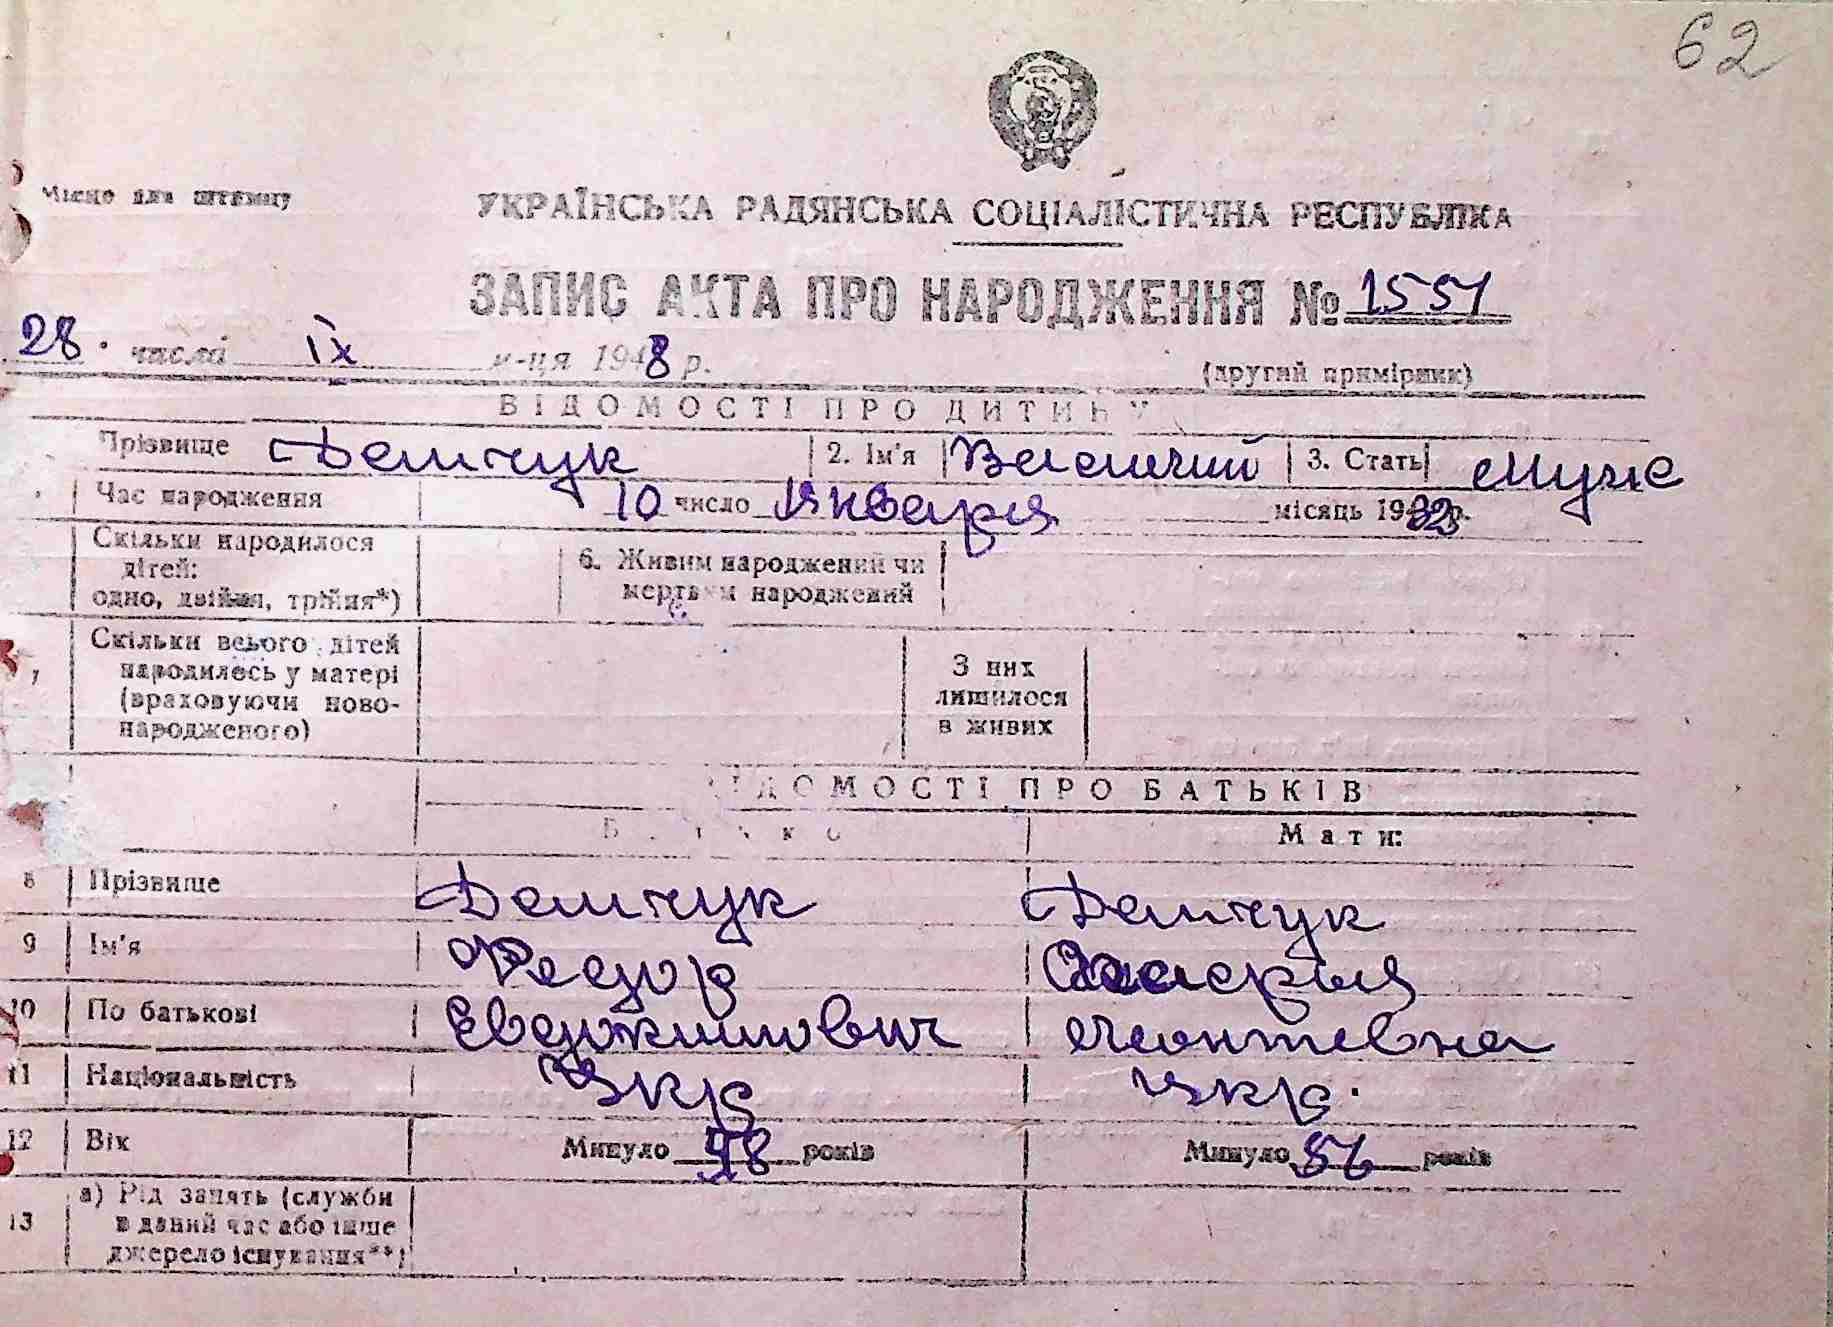 62
Місце для штампу
УКРАЇНСЬКА РАДЯНСЬКА СОЦІАЛІСТИЧНА РЕСПУБЛІКА
ЗАПИС АКТА ПРО НАРОДЖЕННЯ № 1551
28. числа ІХ м-ця 1948 р.
(другий примірник)
ВІДОМОСТІ ПРО ДИТИНУ
Прізвище Демчук 2. Ім'я Василий 3. Стать муж
Час народження 10 число Января місяць 19 р.
Скільки народилося дітей: одно, двійня, трійня*) 6. Живим народжений чи мертвим народжений
7 Скільки всього дітей народилось у матері (враховуючи новонародженого) З них лишилося в живих
ВІДОМОСТІ ПРО БАТЬКІВ
Батько Мати:
8 Прізвище Демчук Демчук
9 Ім'я Федор
10 По батькові Евдокимович Леонтевна
11 Національність Укр Укр.
12 Вік Минуло 58 років Минуло 56 років
13 а) Рід занять (служби в даний час або інше джерело існування**)